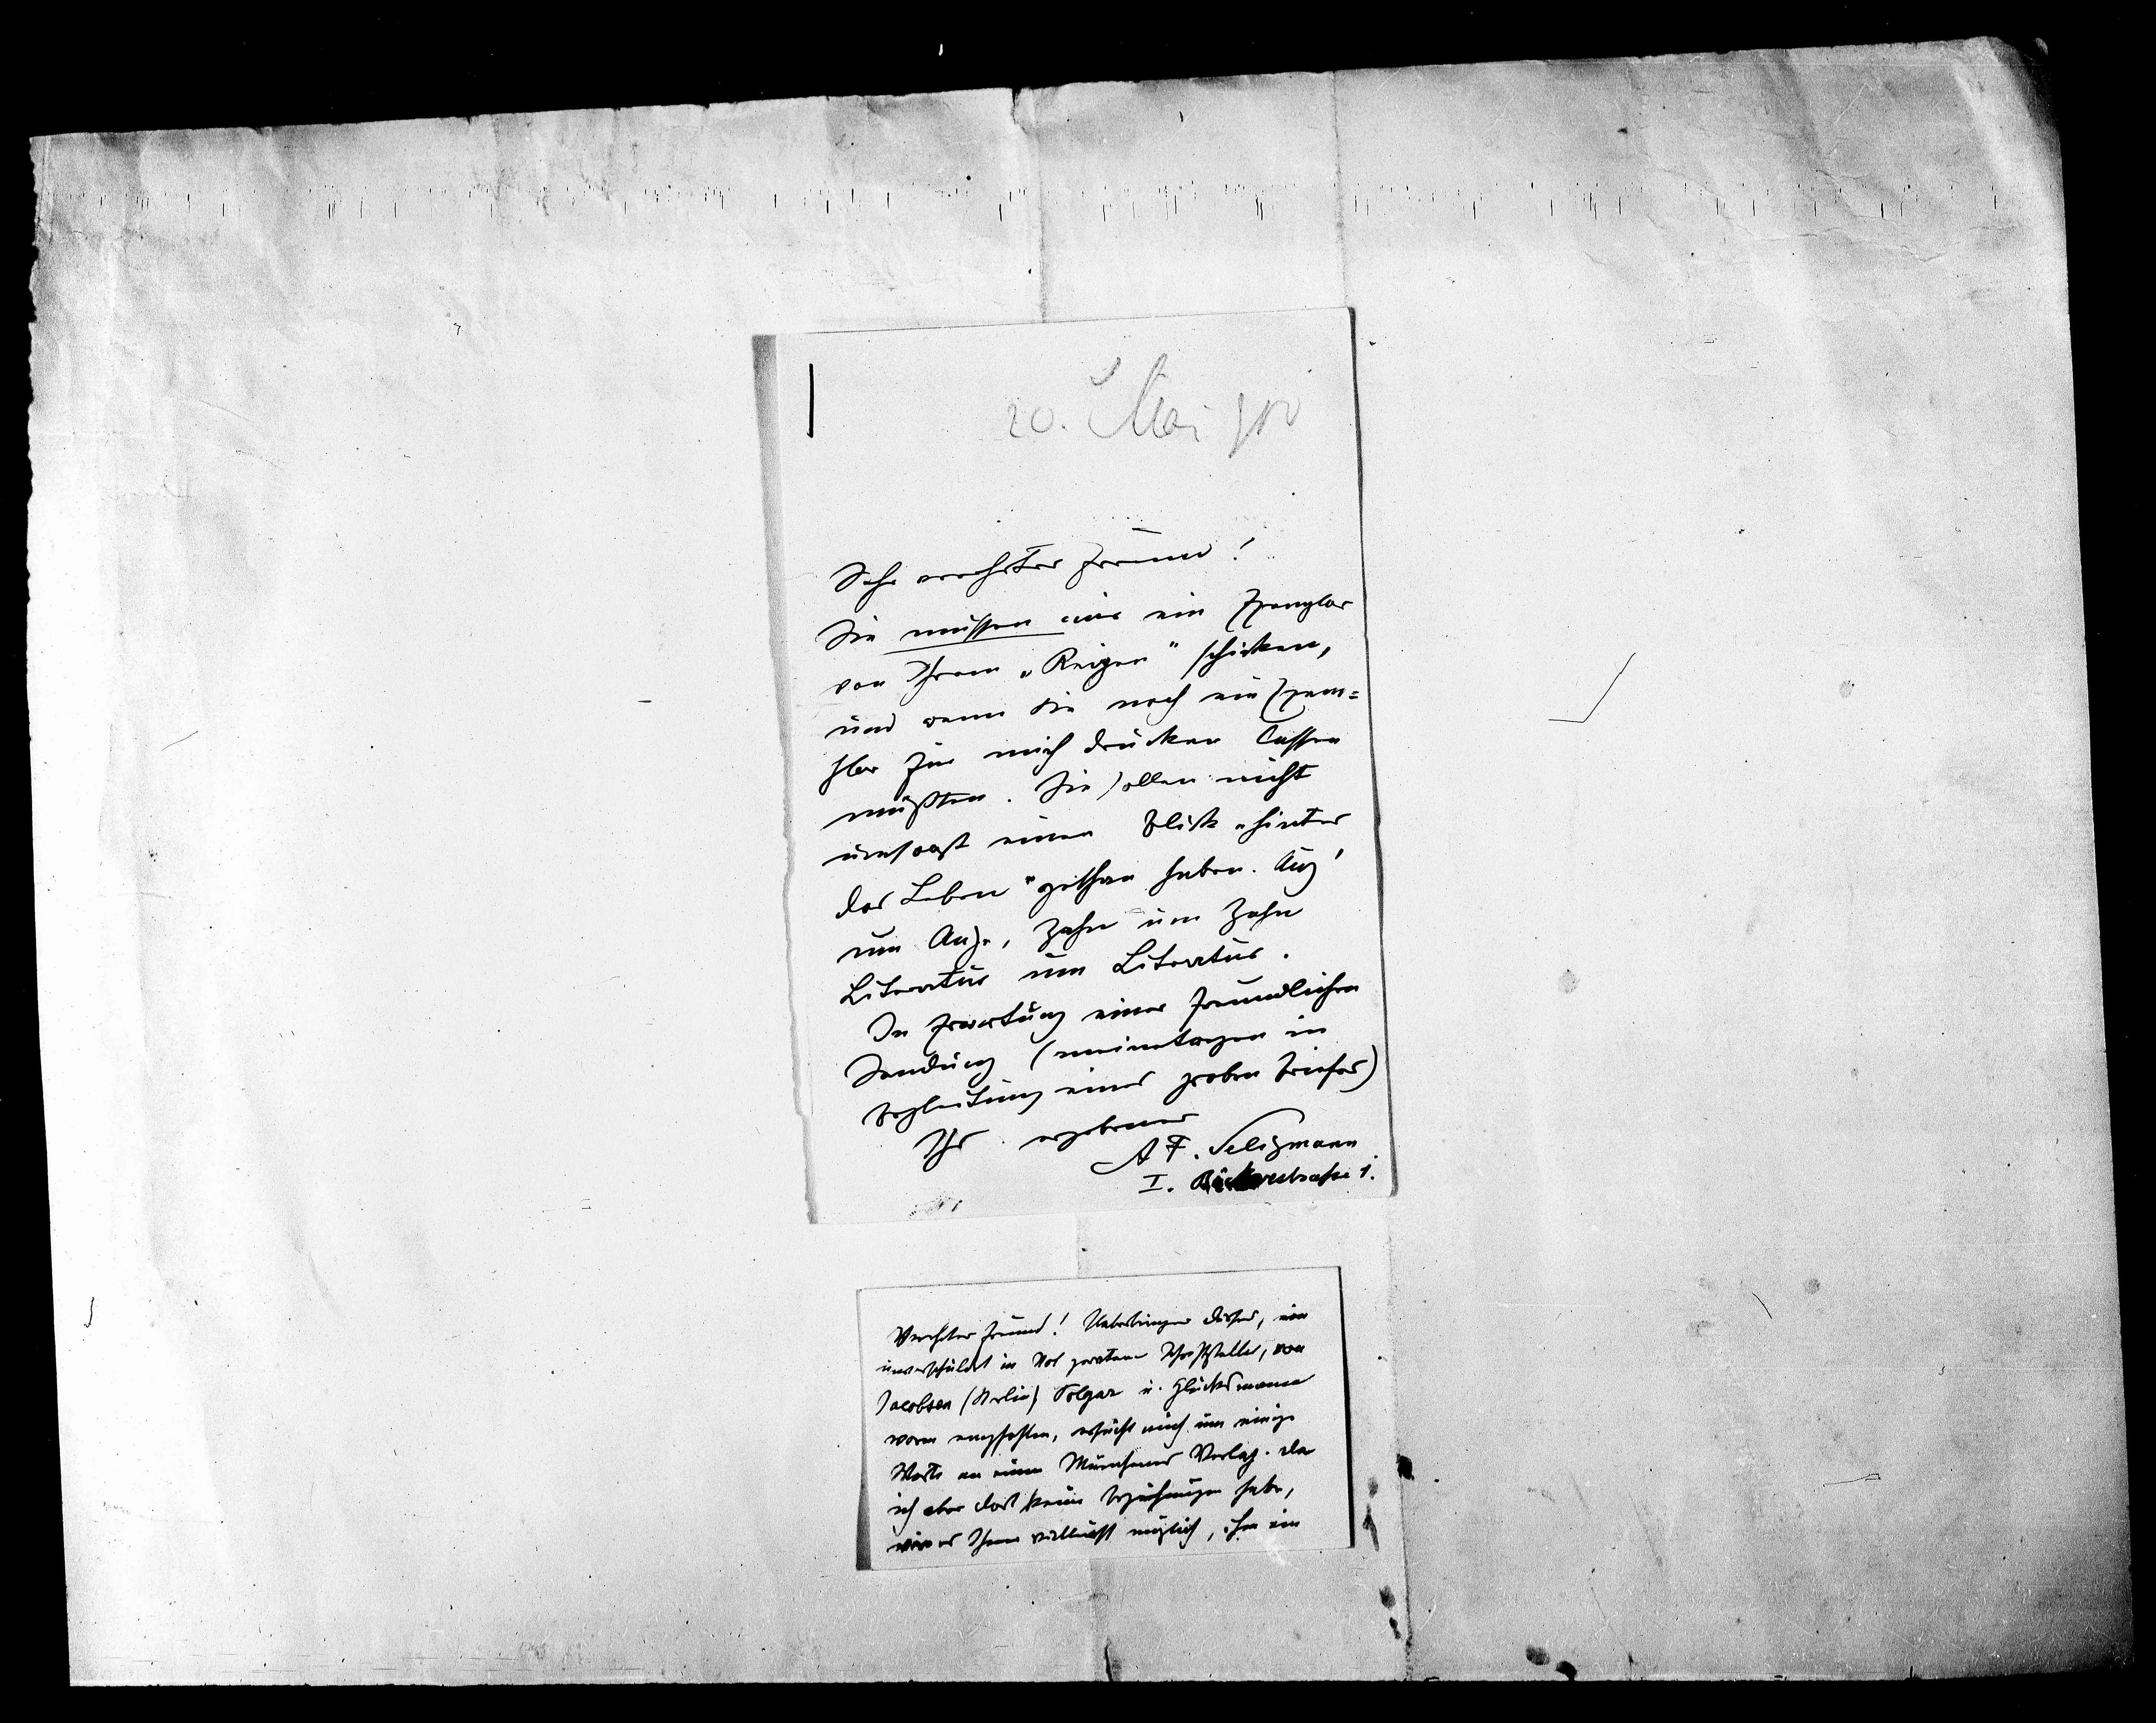 20. Mai 900
Sehr verehrter Freund!
Sie müssen mir ein Exemplar
von Ihrem „Reigen" schicken,
und wenn Sie noch ein Exem=
plar für mich drucken lassen
müßten. Sie sollen nicht
umsonst einen Blick „hinter
das Leben" gethan haben. Aug'
um Auge, Zahn um Zahn
Literatur um Literatur.
In Erwartung einer freundlichen
Sendung (meinetwegen in
Begleitung eines groben Briefes)
Ihr ergebener
A F. Seligmann
I. Bäckerstrasse 1.
Verehrter Freund! Ueberbringer dieses, ein
unverschuldet in Not geratener Schriftsteller, von
Jacobson (Berlin) Polgar u. Glücksmann
warm empfohlen, ersucht mich um einige
Worte an einen Münchener Verlag. Da
ich aber dort keine Beziehungen habe,
wäre es Ihnen vielleicht möglich, ihm ein